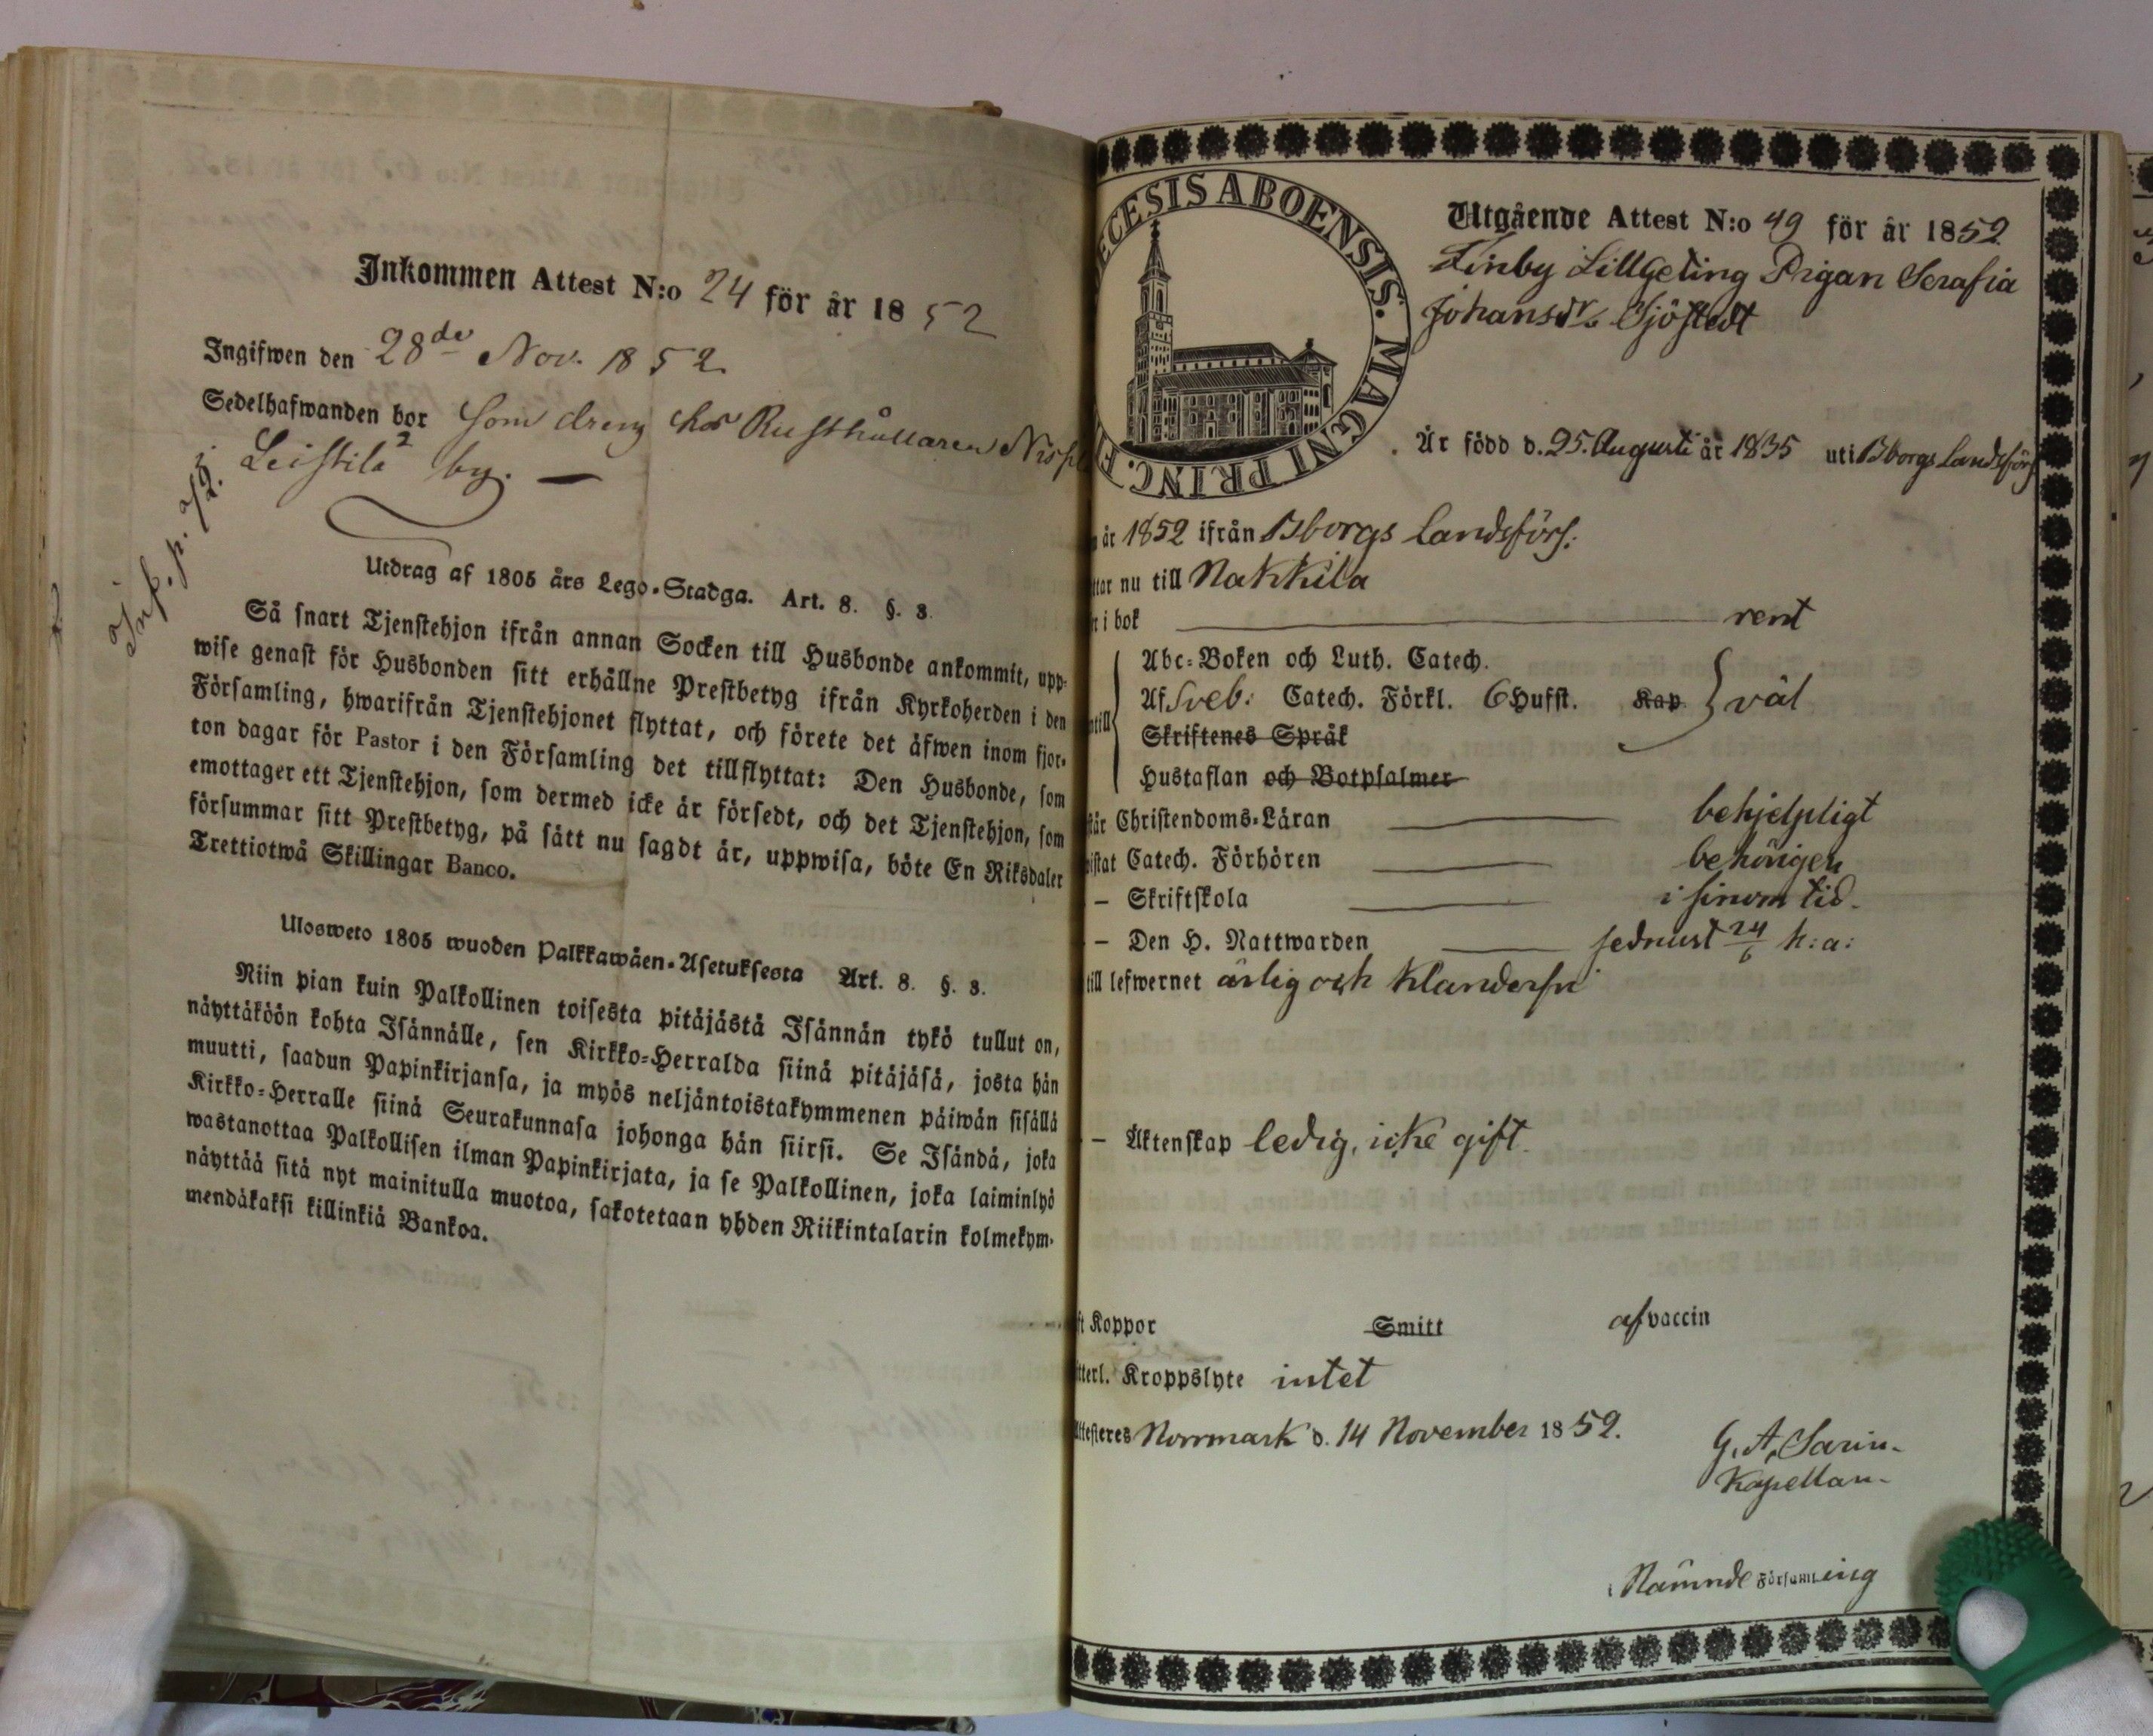 Inkommen Attest N:o 24 för år 1852
Ingifwen den 28de Nov. 1852
Sedelhafwanden bor som dreng hos Rusthållaren
Leistilä by. —
Inf. p.
Utdrag af 1805 års Lego-Stadga. Art. 8. §. 3.
Så snart Tjenstehjon ifrån annan Socken till Husbonde ankommit, upp-
wise genast för Husbonden sitt erhållne Prestbetyg ifrån Kyrkoherden i den
Församling, hwarifrån Tjenstehjonet flyttat, och förete det äfwen inom fjor-
ton dagar för Pastor i den Församling det tillflyttat: Den Husbonde, som
emottager ett Tjenstehjon, som dermed icke är försedt, och det Tjenstehjon, som
försummar sitt Prestbetyg, på sätt nu sagdt är, uppwisa, böte En Riksdaler
Trettiotwå Skillingar Banco.
Ulosweto 1805 wuoden Palkkawäen-Asetuksesta Art. 8. §. 3.
Niin pian kuin Palkollinen toisesta pitäjästä Isännän tykö tullut on,
näyttäköön kohta Isännälle, sen Kirkko-Herralda siinä pitäjäsä, josta hän
muutti, saadun Papinkirjansa, ja myös neljäntoistakymmenen päiwän sisällä
Kirkko-Herralle siinä Seurakunnasa johonga hän siirsi. Se Isändä, joka
wastanottaa Palkollisen ilman Papinkirjata, ja se Palkollinen, joka laiminlyö
näyttää sitä nyt mainitulla muotoa, sakotetaan yhden Riikintalarin kolmekym-
mendäkaksi killinkiä Bankoa.
ECESIS ABOENSIS. MAGNI PRINC. F
Utgående Attest N:o 49 för år 1852
Finby Lillgeting Pigan Serafia
Johansdr. Sjöstedt
Är född d. 25. Augusti år 1835 uti Bborgs Landsförs
år 1852 ifrån Bborgs Landsförs:
ttar nu till Nakkila
i bok — rent
Abc-Boken och Luth. Catech.
Af Sveb: Catech. Förkl. 6 Hufst. Kap. } väl
Skriftenes Språk
Hustaflan och Botpsalmer
står Christendoms-Läran — behjelpligt
istat Catech. Förhören — behörigen
— Skriftskola — i sinom tid.
— Den H. Nattwarden — sednast 24/6 h: a:
till lefwernet ärlig och klanderfri
— Äktenskap ledig, icke gift.
ft Koppor Smitt af vaccin
tterl. Kroppslyte intet
Attesteres Norrmark d. 14 November 1852.
G. A. Sarin.
Kapellan.
i Nämnde Församling